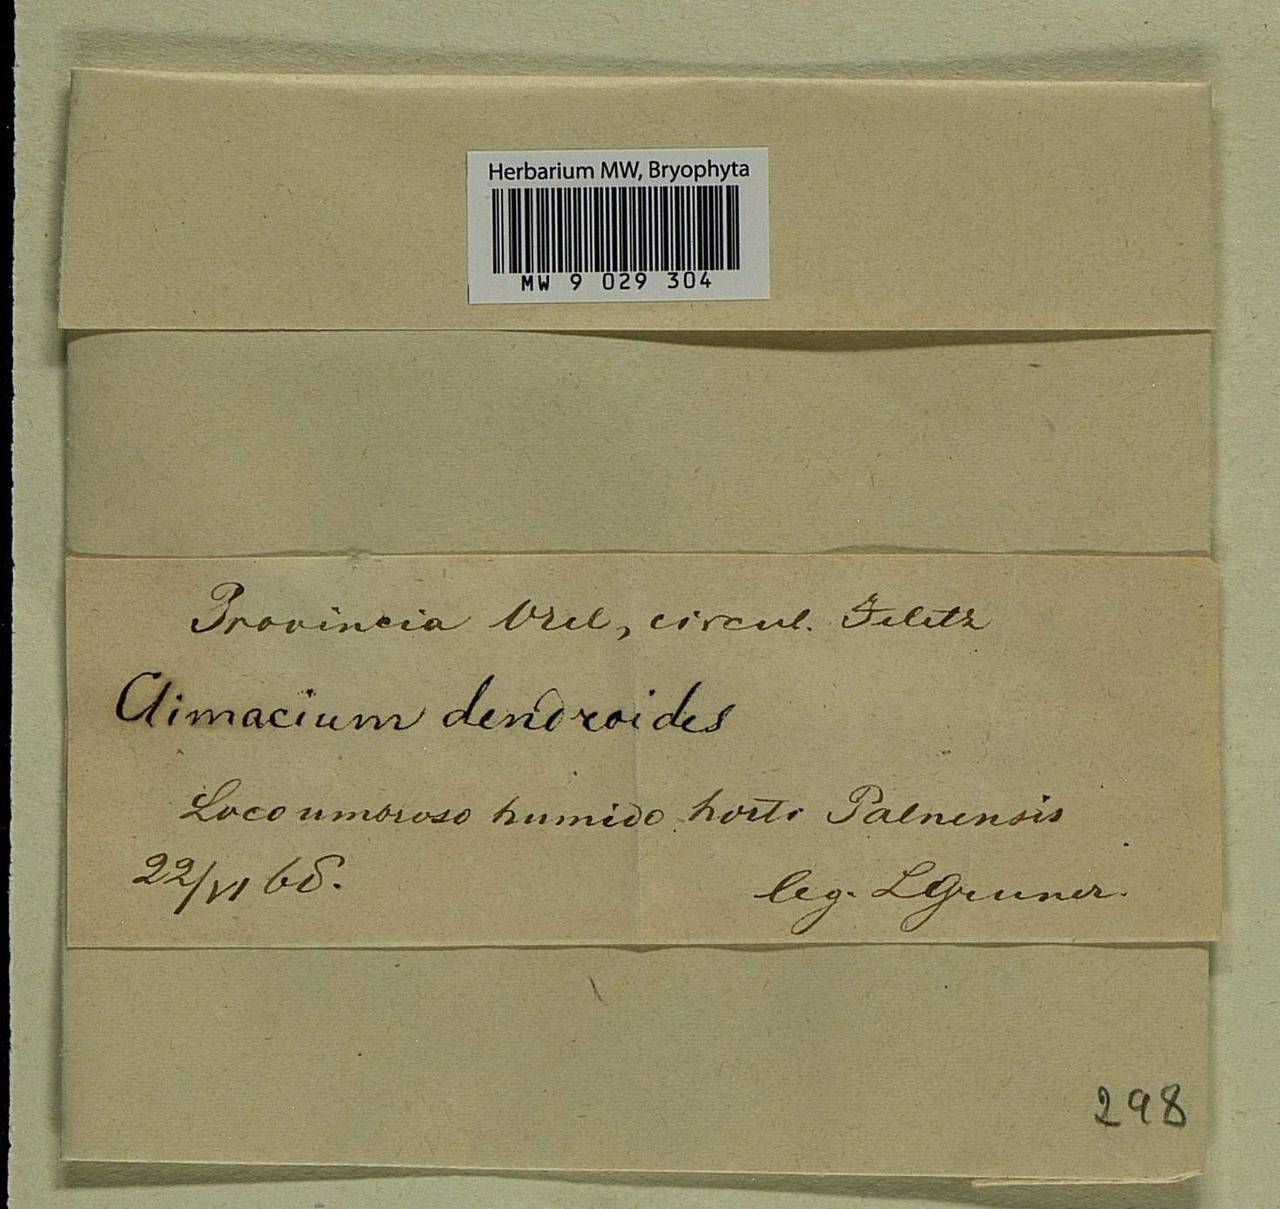 Herbarium MW, Bryophyta
MW 9 029 304
Provincia Orel, circul. Jeletz
Climacium dendroides
Loco umbroso humido horti Palnensis
22/VI 68. leg. LGruner.
298